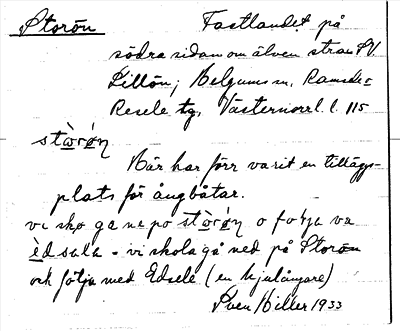 Storön Fastlandet på
södra sidan om älven strax SV.
Lillön; Helgums sn, Ramsele-
Resele tg, Västernorrl. l. 115
stòrón
Här har förr varit en tilläggs-
plats för ångbåtar.
vi skø ga ne po stòrón o følja va
èdsala - vi skola gå ned på Storön
och följa med Edsele (en hjulångare)
Sven Hiller 1933